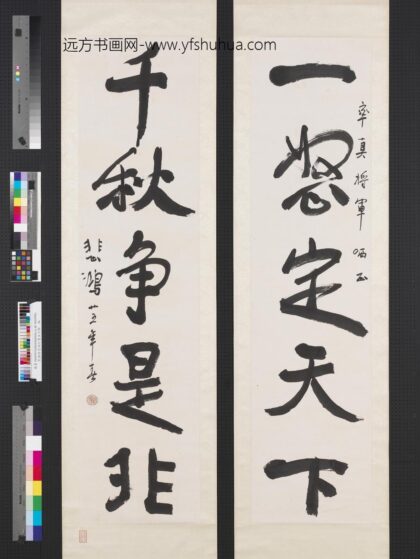 远方书画网-www.yfshuhua.com
率真將軍 哂正
一怒定天下
千秋争是非
悲鴻 廿五年春